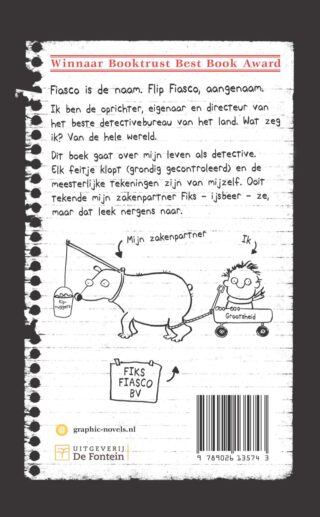 Winnaar Booktrust Best Book Award
Fiasco is de naam. Flip Fiasco, aangenaam.
Ik ben de oprichter, eigenaar en directeur van
het beste detectivebureau van het land. Wat zeg
ik? Van de hele wereld.
Dit boek gaat over mijn leven als detective.
Elk feitje klopt (grondig gecontroleerd) en de
meesterlijke tekeningen zijn van mijzelf. Ooit
tekende mijn zakenpartner Fiks - ijsbeer - ze,
maar dat leek nergens naar.
Mijn zakenpartner
Ik
Kip-
nuggets
Grootsheid
FIKS
FIASCO
BV
graphic-novels.nl
UITGEVERIJ
De Fontein
9 789026 135743